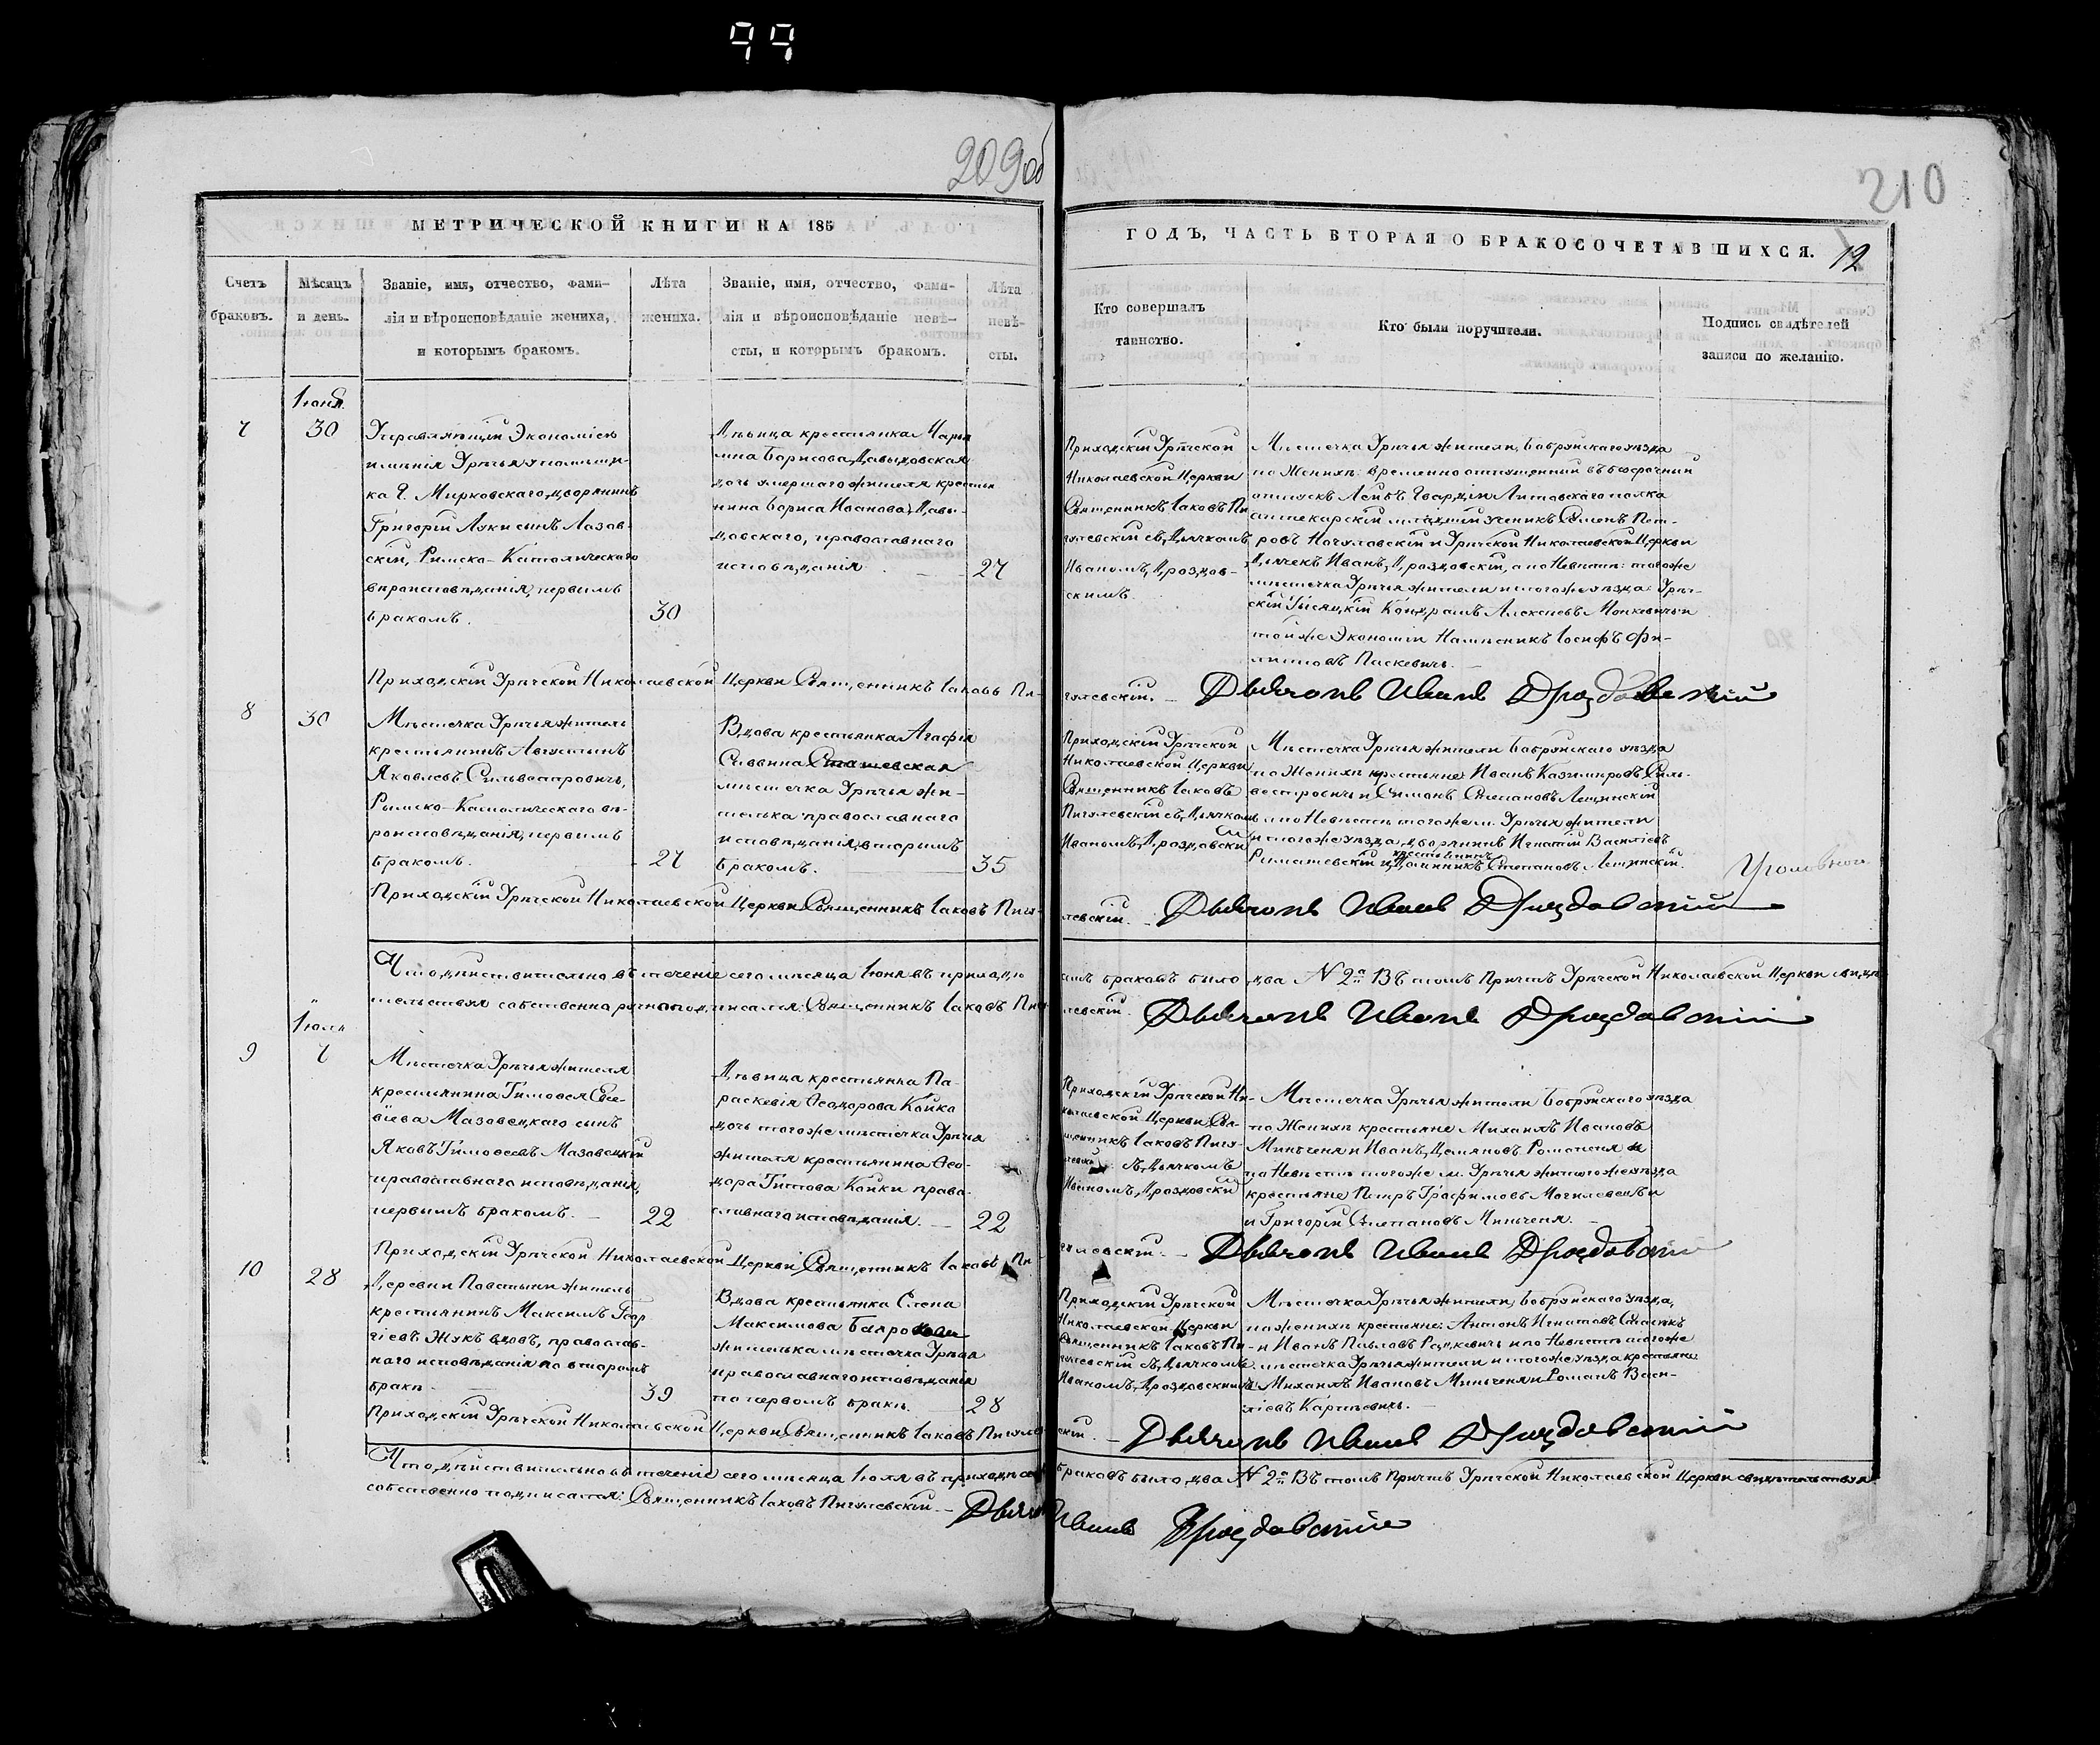 99
209об
210
МЕТРИЧЕСКОЙ КНИГИ НА 185
ГОДЪ, ЧАСТЬ ВТОРАЯ О БРАКОСОЧЕТАВШИХСЯ.
12
Счетъ
браковъ.
Мѣсяцъ
и день.
Званіе, имя, отчество, фами-
лія и вѣроисповѣданіе жениха,
и которымъ бракомъ.
Лѣта
жениха.
Званіе, имя, отчество, фами-
лія и вѣроисповѣданіе невѣ-
сты, и которымъ бракомъ.
Лѣта
невѣ-
сты.
Кто совершалъ
таинство.
Кто были поручители.
Подпись свидѣтелей
записи по желанію.
Іюня
7
30
Управляющій Экономіею
имѣнія Урѣчья помѣщи-
ка Мирковскаго, дворянинъ
Григорій Луки сынъ Лазов-
скій, Римско-Католическаго
вѣроисповѣданія, первымъ
бракомъ.
30
Дѣвица крестьянка Марь
яна Борисова Давыдовская
дочь умершаго жителя крестья
нина Бориса Иванова Давы-
довскаго, православнаго
исповѣданія
27
Приходскій Урѣчской
Николаевской Церкви
Священникъ Іаковъ Пи
гулевскій съ Дьячкомъ
Иваномъ Дроздов-
скимъ.
Мѣстечка Урѣчья жители, Бобруйскаго уѣзда
по Женихѣ: временно отпущенный въ безсрочный
отпускъ Лейбъ Гвардіи Литовскаго полка
аптекарскій младшій ученикъ Семенъ Пет-
ровъ и Урѣчской Николаевской Церкви
Дьячекъ Иванъ Дроздовскій, а по Невѣстѣ: тогоже
мѣстечка Урѣчья жители и тогоже уѣзда: Урѣч-
скій Тысяцкій Кондратъ Алексѣевъ и
тойже Экономіи Намѣсникъ Іосифъ Фи-
липповъ Паскевичъ.
Приходскій Урѣчской Николаевской Церкви Священникъ Іаковъ Пи-
гулевскій. Дьячокъ Иванъ Дроздовскій
8
30
Мѣстечка Урѣчья житель
крестьянинъ Августынъ
Яковлевъ Сильвестровичъ,
Римско-Католическаго вѣ-
роисповѣданія, первымъ
бракомъ.
27
Вдова крестьянка Агафія
Саввина Сташевская
мѣстечка Урѣчья жи-
телька православнаго
исповѣданія, вторымъ
бракомъ.
35
Приходскій Урѣчской
Николаевской Церкви
Священникъ Іаковъ
Пигулевскій съ Дьячкомъ
Иваномъ Дроздовски
Мѣстечка Урѣчья жители Бобруйскаго уѣзда
по Женихѣ крестьяне: Иванъ Казимировъ Силь-
вестровичъ и Симонъ Степановъ Лещинскій
а по Невѣстѣ тогоже м. Урѣчья жители
и тогоже уѣзда, дворянинъ Игнатій Васильевъ
крестьянинъ
и Доминикъ Степановъ Лещинскій.
Приходскій Урѣчской Николаевской Церкви Священникъ Іаковъ Пигу-
левскій. Дьячокъ Иванъ Дроздовскій
Что дѣйствительно въ теченіе сего мѣсяца Іюня въ приходѣ
семъ браковъ было два № 2й Въ томъ Причтъ Урѣчской Николаевской Церкви свидѣ
тельствуя собственноручно подписался: Священникъ Іаковъ Пигу
левскій. Дьячокъ Иванъ Дроздовскій
Іюля
9
7
Мѣстечка Урѣчья жителя
крестьянина Тимофея Евсе-
віева Мазовецкаго сынъ
Яковъ Тимофеевъ Мазовецкій
православнаго исповѣданія,
первымъ бракомъ.
22
Дѣвица крестьянка Па-
раскевія Феодорова Койко
дочь тогоже мѣстечка Урѣчья
жителя крестьянина Фео-
дора Титова Койки право-
славнаго исповѣданія.
22
Приходскій Урѣчской Ни-
колаевской Церкви Свя-
щенникъ Іаковъ Пигу-
левскій съ Дьячкомъ
Иваномъ Дроздовски
Мѣстечка Урѣчья жители Бобруйскаго уѣзда
по Женихѣ крестьяне Михаилъ Ивановъ
Миньченя и Иванъ Демяновъ Романеня а
по Невѣстѣ тогоже м. Урѣчья и тогоже уѣзда
крестьяне Петръ Трофимовъ Могилевецъ и
и Григорій Степановъ Миньченя.
Приходскій Урѣчской Николаевской Церкви Священникъ Іаковъ Пи-
гулевскій. Дьячокъ Иванъ Дроздовскій
10
28
Деревни Повстыни житель
крестьянинъ Максимъ Геор
гіевъ Жукъ вдовъ, православ-
наго исповѣданія по второмъ
бракѣ
39
Вдова крестьянка Елена
Максимова
жителька мѣстечка Урѣчья
православнаго исповѣданія
по первомъ бракѣ.
28
Приходскій Урѣчской
Николаевской Церкви
Священникъ Іаковъ Пи-
гулевскій съ Дьячкомъ
Иваномъ Дроздовскимъ
Мѣстечка Урѣчья жители, Бобруйскаго уѣзда,
по женихѣ крестьяне: Антонъ Игнатовъ
и Иванъ Павловъ Рацкевичъ и по Невѣстѣ тогоже
мѣстечка Урѣчья жители и тогоже уѣзда крестьяне:
Михаилъ Ивановъ Миньченя и Романъ Васи-
ліевъ Карпѣевичъ.
Приходскій Урѣчской Николаевской Церкви Священникъ Іаковъ Пигулев
скій. Дьячокъ Иванъ Дроздовскій
Что дѣйствительно въ теченіе сего мѣсяца Іюля въ приходѣ семъ
браковъ было два № 2й Въ томъ Причтъ Урѣчской Николаевской Церкви свидѣтельствуя
собственно подписался: Священникъ Іаковъ Пигулевскій. Дьячокъ
Иванъ Дроздовскій